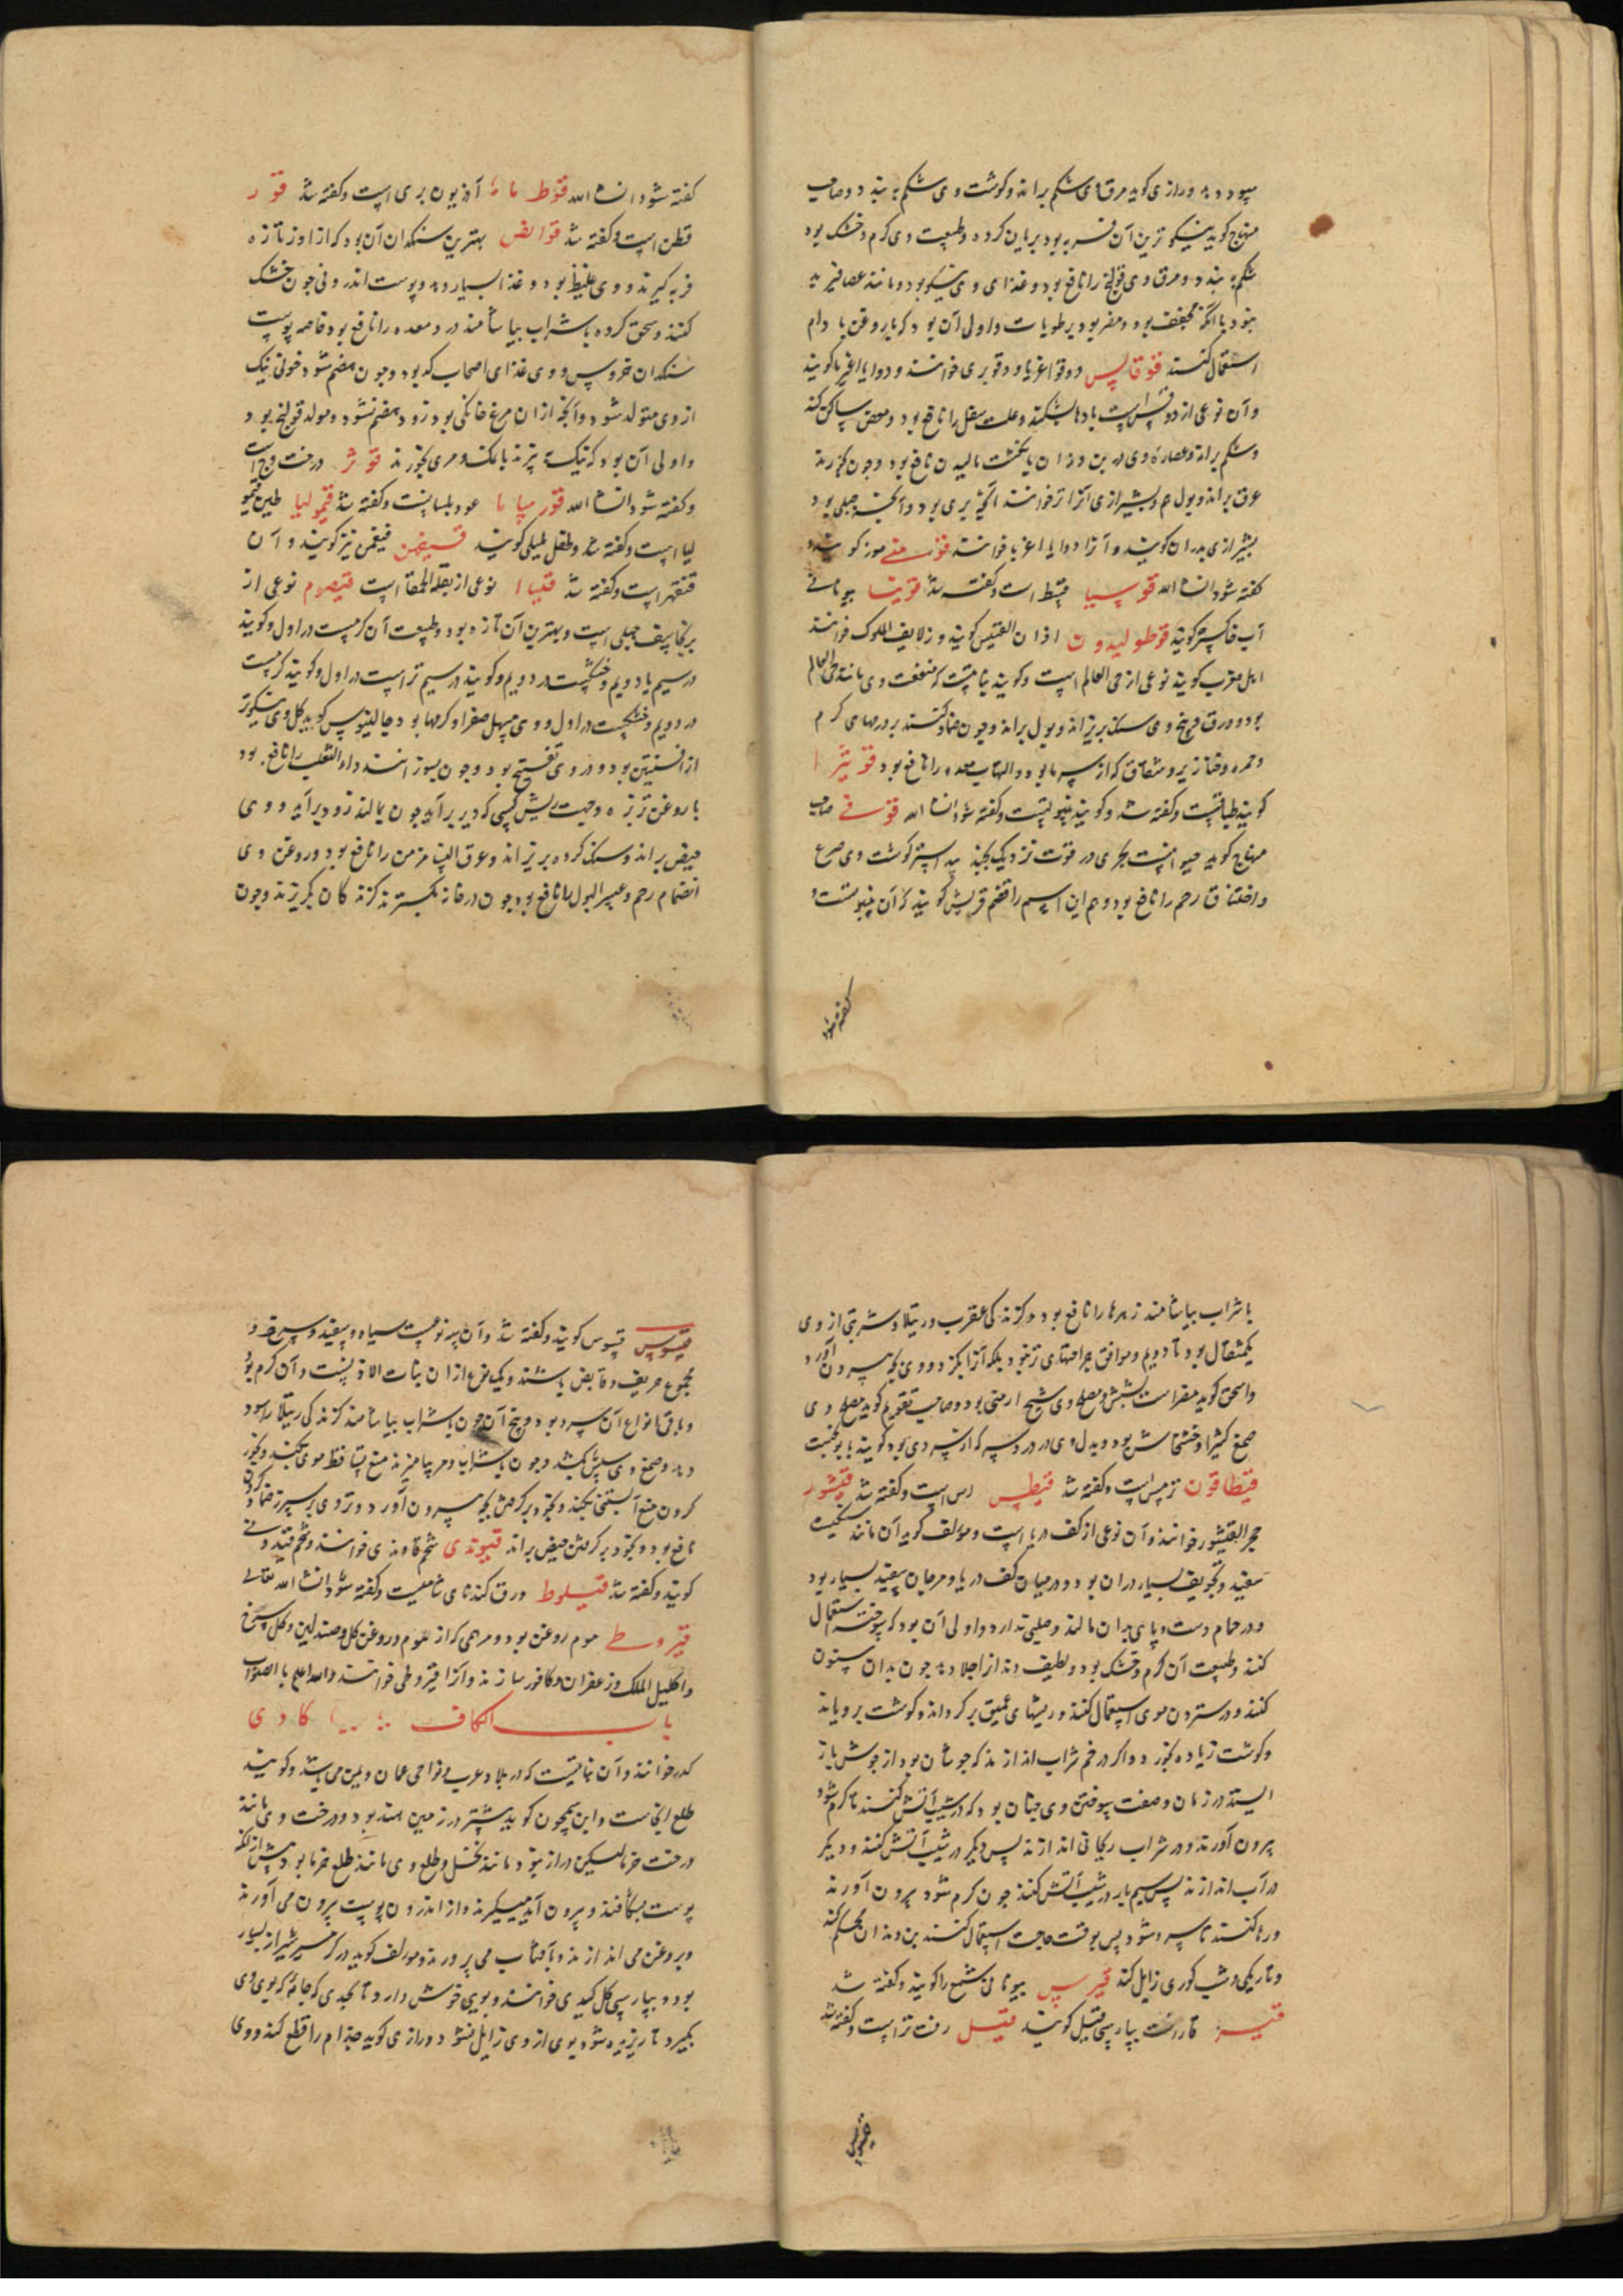 سود دهد و رازی کوید مرق وی شکم براند و کوشت وی شکم به بندد و صاحب
منهاج کوید نیکوترین آن فربه بود بریان کرده و طبیعت وی کرم و خشک بود
شکم به بندد و مرق وی قولنج را نافع بود و غذای وی نیکو بود و مانند عصافیر به
بنود با انکه مجفف بود و مضر بود برطوبات و اولی آن بود که با روغن بادام
استعمال کنند قوقالس دوقوا غریا و دقو بری خوانند و دوایا اغریا کویند
و آن نوعی از دوقس است بادها بشکند و علت سفل را نافع بود و مغص ساکن کند
و شکم براند و عصاره وی در بن دندان بانکشت مالیدن نافع بود و چون بخورند
عرق براند و بول هم و بشیرازی آنرا ترخوانند آنچه بری بود و آنچه جبلی بود
بشیرازی بدران کویند و آنرا دوایا اغریا خوانند قوز متی موز کویند و
کفته شود انشاء الله قوسیا قسط است و کفته شد قونیا بیونانی
آب خاکستر کویند قوطولیدون اذان القسیس کویند و زلایف الملوک خوانند
اهل مغرب کویند نوعی از حی العالم است و کویند نباتیست که منفعت وی مانند حی العالم
بود و ورق و بیخ وی سنک بریزاند و بول براند و چون ضماد کنند بر ورمهای کرم
و حمره و خنازیر و شقاق که از سرما بود و التهاب معده را نافع بود قونیرا
کویند طباقست و کفته شد و کویند ینبوتست و کفته شود انشاء الله قوقی صاحب
منهاج کوید حیوانیست بحری در قوت نزدیک بجند بیدستر کوشت وی صرع
و اختناق رحم را نافع بود و هم این اسم را قضم قریش کویند که آن ینبوتست و
کفته شود
کفته شود انشاء الله قوط ماما آذریون بری است و کفته شد قور
قطن است و کفته شد قوانص بهترین سنکدان آن بود که از اوز تازه
فربه کیرند و وی غلیظ بود و غذا بسیار دهد و پوست اندرونی چون خشک
کنند و سحق کرده با شراب بیاشامند درد معده را نافع بود خاصه پوست
سنکدان خروس و وی غذای اصحاب کد بود و چون هضم شود خونی نیک
از وی متولد شود و آنچه از ان مرغ خانکی بود زود هضم نشود و مولد قولنج بود
و اولی آن بود که نیک پزند با نمک و مری بخورند قوثر درخت وج است
و کفته شود انشاء الله قورمیاما عود بلسانست و کفته شد قیمولیا طین قیمو
لیا است و کفته شد و طفل طلیطلی کویند قسیفن فیقهن نیز کویند و آن
قنقهر است و کفته شد قلیبا نوعی از بقلة الحمقا است قیصوم نوعی از
برنجاسف جبلی است و بهترین آن تازه بود و طبیعت آن کرمست در اول و کویند
در سیم یا دویم و خشکست در دویم و کویند در سیم تر است در اول و کویند کرمست
در دویم و خشکست در اول و وی مسهل صفرا و کرمها بود و جالینوس کوید کل وی نیکوتر
از افسنتین بود و در وی تفتیح بود و چون بسوزانند داء الثعلب را نافع بود
با روغن ترب و جهت ریش کسی که دیر برآید چون بمالند زود برآید و وی
حیض براند و سنک کرده بریزاند و عرق النسا مزمن را نافع بود و روغن وی
انضمام رحم و عسر البول را نافع بود و چون در خانه بکسترند کزندکان بکریزند و چون
با شراب بیاشامند زهرها را نافع بود و کزندکی عقرب و رتیلا و شربتی از وی
یکمثقال بود تا دویم و موافق جراحتهای تر نبود بلکه آنرا بکزد و وی بچه بیرون آورد
و اسحق کوید مضر است بشش و مصلح وی شیح ارمنی بود و صاحب تقویم کوید مصلح وی
صمغ کثیرا و خشخاش بود و بدل وی در درد سر که از سردی بود کویند بابونجست
قیطاقون ترمس است و کفته شد قیطس اس است و کفته شد قیشور
حجر القیشور خوانند و آن نوعی از کف دریا است و مؤلف کوید آن مانند سنکیست
سفید و تجویف بسیار در ان بود و در میان کف دریا و مرجان سفید بسیار بود
و در حمام دست و پای بدان مالند و صلبی ندارد و اولی آن بود که سوخته استعمال
کنند و طبیعت آن کرم و خشک بود و لطیف دندان را جلا دهد چون بدان سنون
کنند و در ستردن موی استعمال کنند و ریشهای عمیق پر کرداند و کوشت برویاند
و کوشت زیاده بخورد و اکر در خم شراب اندازند که جوشان بود از جوش باز
ایستد در زمان و صفت سوختن وی چنان بود که در شیب آتش کنند تا کرم شود
بیرون آورند و در شراب ریحانی اندازند پس دیکر در شیب آتش کنند و دیکر
در آب اندازند پس سیم بار در شیب آتش کنند چون کرم شود بیرون آورند
و رها کنند تا سرد شود پس بوقت حاجت استعمال کنند بن دندان محکم کند
و تاریکی و شب کوری زایل کند قیرس بیونانی شمع را کویند و کفته شد
قیر قار است بپارسی قیل کویند قیسل زفت تر است و کفته شد
قیسوس
قیسوس قسوس کویند و کفته شد و آن سه نوعست سیاه و سفید و سرخ و
مجموع حریف و قابض باشند و یک نوع از ان نبات لاذنست و آن کرم بود
و باقی انواع آن سرد بود و بیخ آن چون با شراب بیاشامند کزندکی رتیلا را سود
دهد و صمغ وی سپش بکشد و چون با شراب و مر بیامیزند منع تساقط موی بکند و بخور
کردن منع آبستنی بکند و بخود برکرفتن بچه بیرون آورد و ورق وی بر سپرز ضماد کردن
نافع بود و بخود برکرفتن حیض براند قیوندی شحم قاوندی خوانند و شحم قیدونی
کویند و کفته شد قیسلوط ورق کندنای شامیست و کفته شود انشاء الله تعالی
قیروطی موم روغن بود و مرهمی که از موم و روغن کل و صندلین و کل سرخ
و اکلیل الملک و زعفران و کافور سازند و آنرا قیروطی خوانند و الله اعلم بالصواب
باب الکاف کادی
کدر خوانند و آن نباتیست که در بلاد عرب و نواحی عمان و یمن می باشد و کویند
طلع آنجاست و ابن سمجون کوید بیشتر در زمین هند بود و درخت وی مانند
درخت خرما لیکن دراز نبود مانند نخل و طلع وی مانند طلع خرما بود پیش از آنکه
پوست بشکافند و بیرون آید میکیرند و از اندرون پوست بیرون می آورند
و بروغن می اندازند و بآفتاب می پرورند و مؤلف کوید در کرمسیر شیراز بسیار
بود و بپارسی کل کیدی خوانند و بویی خوش دارد تا بحدی که جامه که بوی وی
بکیرد تا ریزیده شود بوی از وی زایل نشود و رازی کوید جذام را قطع کند و وی